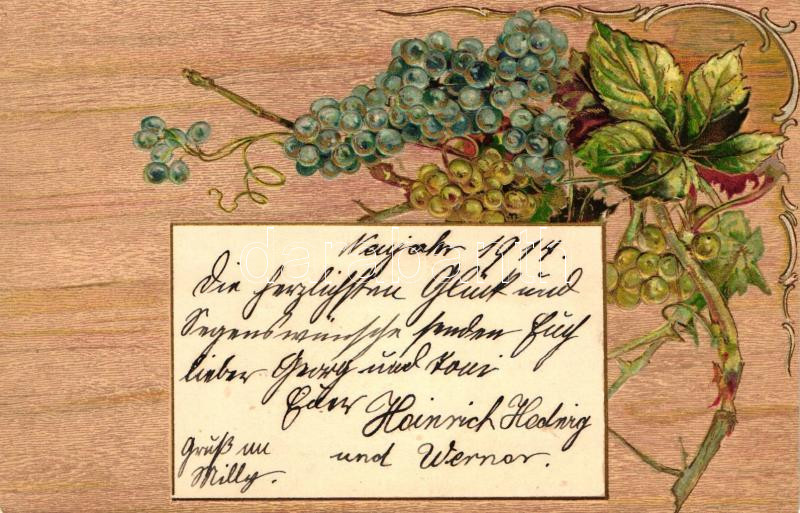 Neujahr 1914.
Die herzlichsten Glück und
Segenswünsche senden Euch
lieber Georg und Toni
Euer Heinrich Hedwig
und Werner.
Gruß an
Milly.